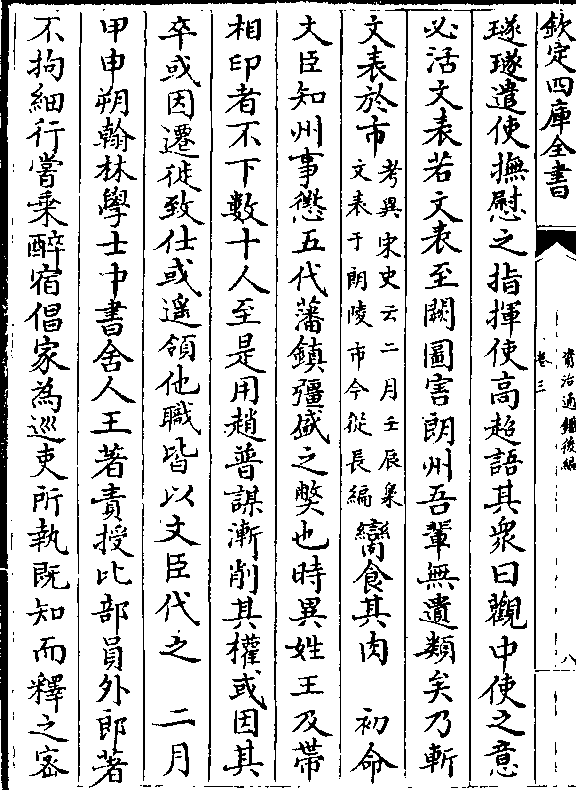 欽定四庫全書
資治通鑑後編
卷三
八
璲璲遣使撫慰之指揮使高超語其衆曰觀中使之意
必活文表若文表至闕圖害朗州吾輩無遺類矣乃斬
文表於市考異宋史云二月壬辰梟文表于朗陵市今從長編臠食其肉　初命
大臣知州事懲五代藩鎮彊盛之弊也時異姓王及帶
相印者不下數十人至是用趙普謀漸削其權或因其
卒或因遷徙致仕或遥領他職皆以文臣代之　二月
甲申朔翰林學士中書舍人王著責授比部員外郎著
不拘細行嘗乘醉宿倡家為巡吏所執既知而釋之密